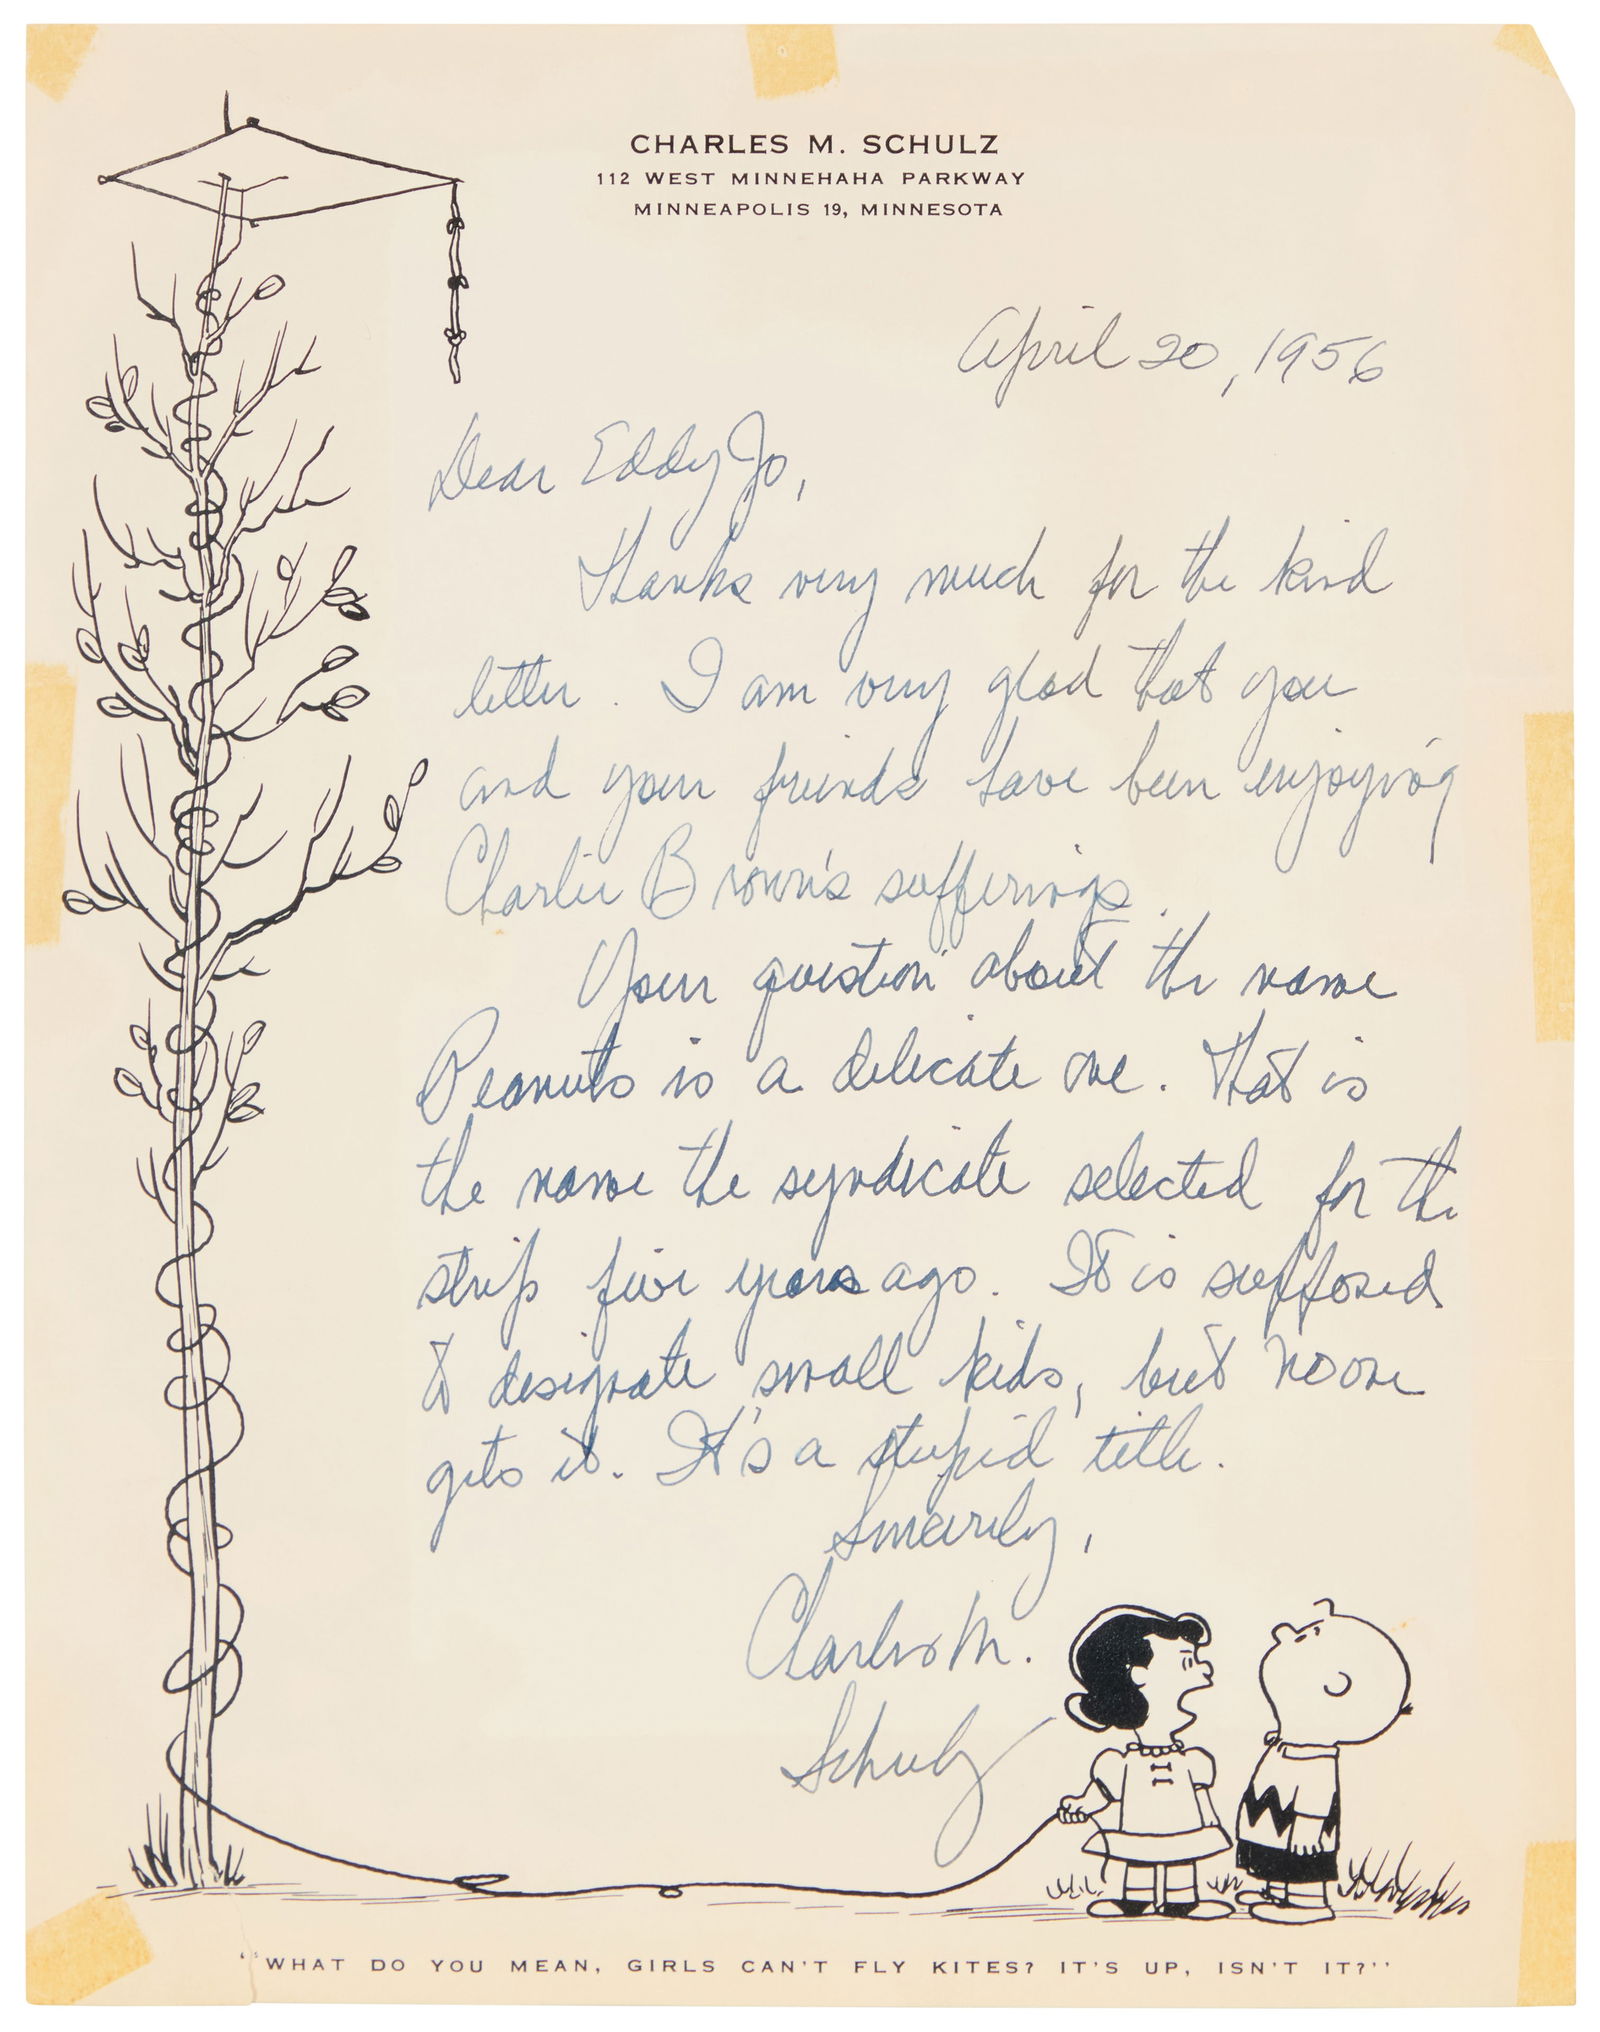 CHARLES M. SCHULZ
112 WEST MINNEHAHA PARKWAY
MINNEAPOLIS 19, MINNESOTA
April 20, 1956
Dear Eddy Jo,
Thanks very much for the kind
letter. I am very glad that you
and your friends have been enjoying
Charlie Brown's sufferings.
Your question about the name
Peanuts is a delicate one. That is
the name the syndicate selected for the
strip five years ago. It is supposed
to designate small kids, but no one
gets it. It's a stupid title.
Sincerely,
Charles M.
Schulz
"WHAT DO YOU MEAN, GIRLS CAN'T FLY KITES? IT'S UP, ISN'T IT?"